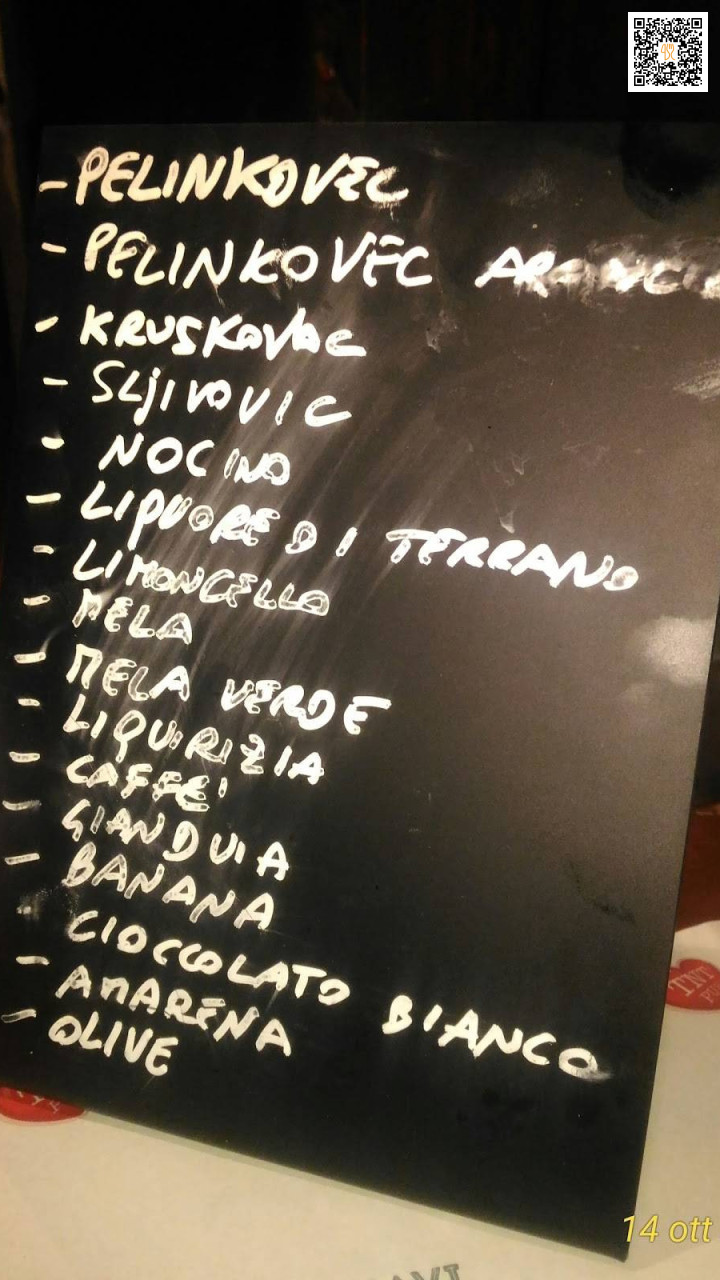 - PELINKOVEC
- PELINKOVEC ARANCIA
- KRUSKOVAC
- SLjIVOVIC
- NOCINO
- LIQUORE DI TERRANO
- LIMONCELLO
- MELA
- MELA VERDE
- LIQUIRIZIA
- CAFFE'
- GIANDUIA
- BANANA
CIOCCOLATO BIANCO
- AMARENA
- OLIVE
TNT
14 ott